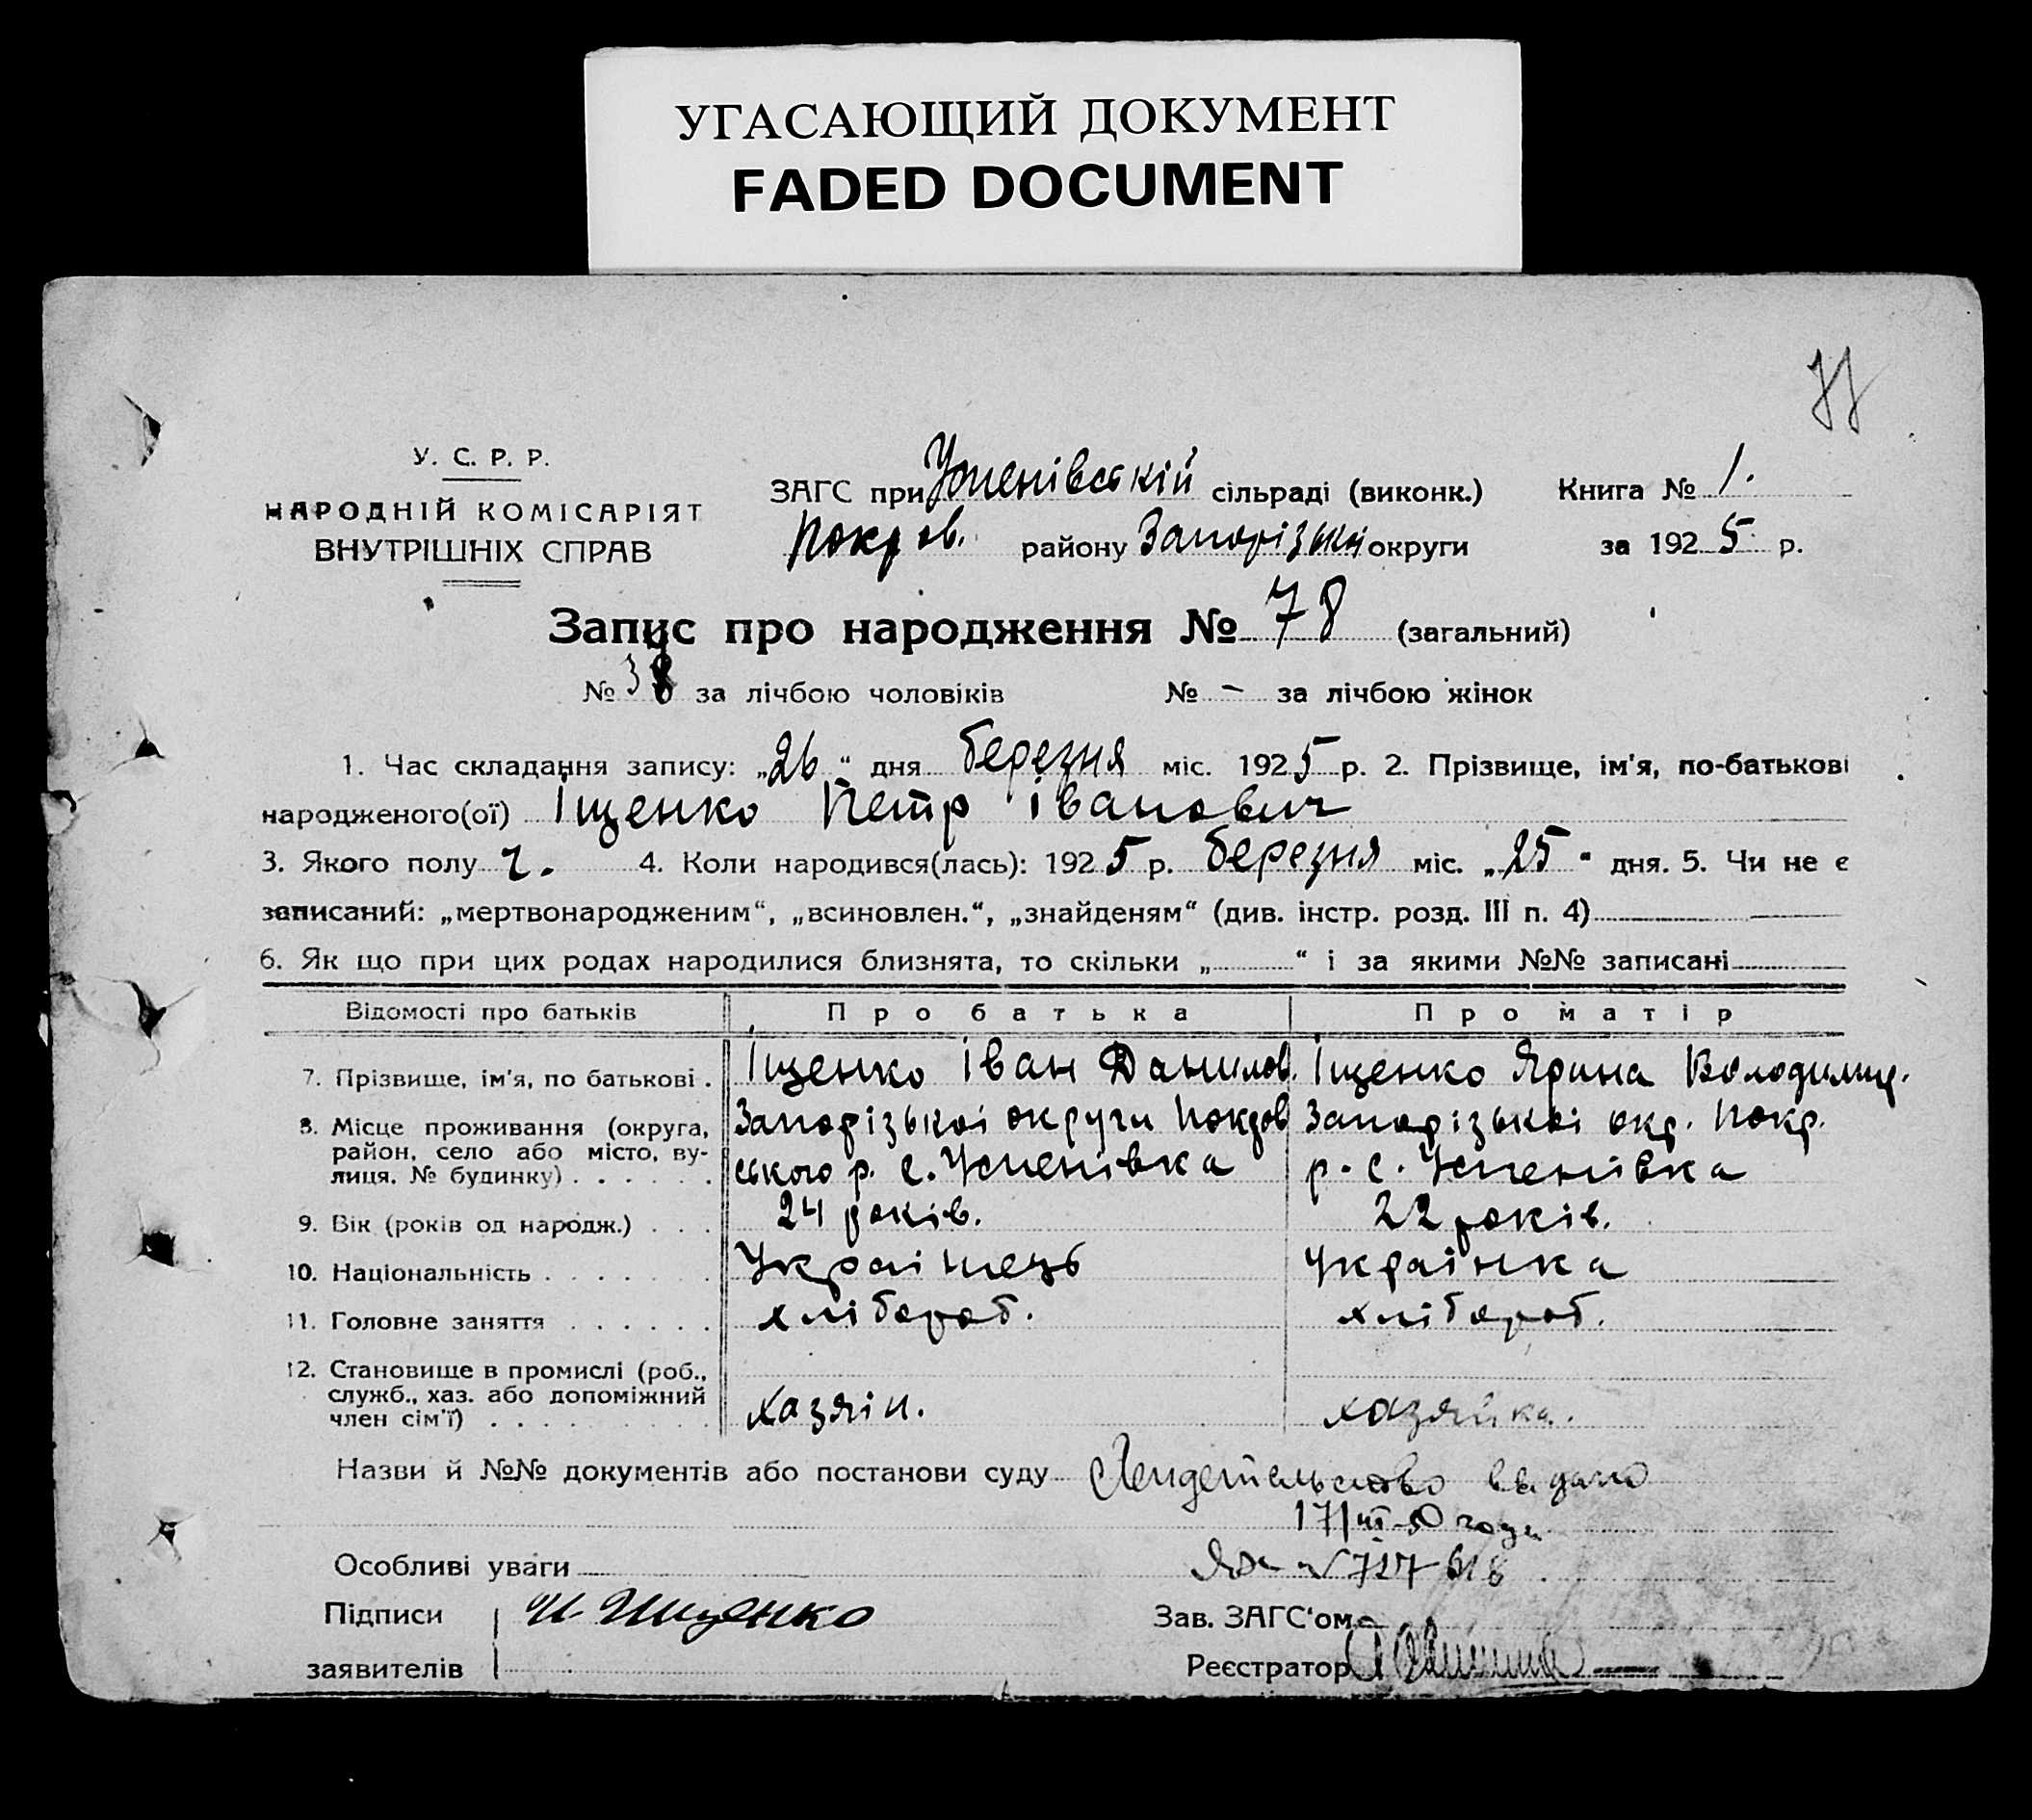 УГАСАЮЩИЙ ДОКУМЕНТ
FADED DOCUMENT
У. С. Р. Р.
НАРОДНІЙ КОМІСАРІЯТ
ВНУТРІШНІХ СПРАВ
ЗАГС при Успенівській сільраді (виконк.) Книга № 1.
Покров. району Запорізькій округи за 1925 р.
Запис про народження № 78 (загальний)
№ 38 за лічбою чоловіків № – за лічбою жінок
1. Час складання запису: „26“ дня березня міс. 1925 р. 2. Прізвище, ім'я, по-батькові
народженого(ої) Іщенко Петр Іванович
3. Якого полу ч. 4. Коли народився(лась): 1925 р. березня міс. „25“ дня. 5. Чи не є
записаний: „мертвонародженим“, „всиновлен.“, „знайденям“ (див. інстр. розд. III п. 4)
6. Як що при цих родах народилися близнята, то скільки „ “ і за якими №№ записані
Відомості про батьків Про батька Про матір
7. Прізвище, ім'я, по батькові . Іщенко Іван Данилов. Іщенко Ярина Володимир.
8. Місце проживання (округа, Запорізькоі округи Покров Запорізькоі окр. Покр.
район, село або місто, ву-
лиця, № будинку) . . . . . . ського р. с. Успенівка р. с. Успенівка
9. Вік (років од народж.) . . . 24 років. 22 років.
10. Національність . . . . . . . Украінець Украінка
11. Головне заняття . . . . . . хлібороб. хлібороб.
12. Становище в промислі (роб.,
служб., хаз. або допоміжний
член сім'ї) . . . . . . . . . хазяін. хазяйка.
Назви й №№ документів або постанови суду Свидетельство выдано
17/III-50 года
Особливі уваги № 727618
Підписи И. Ищенко Зав. ЗАГС‘ом
заявителів Реєстратор